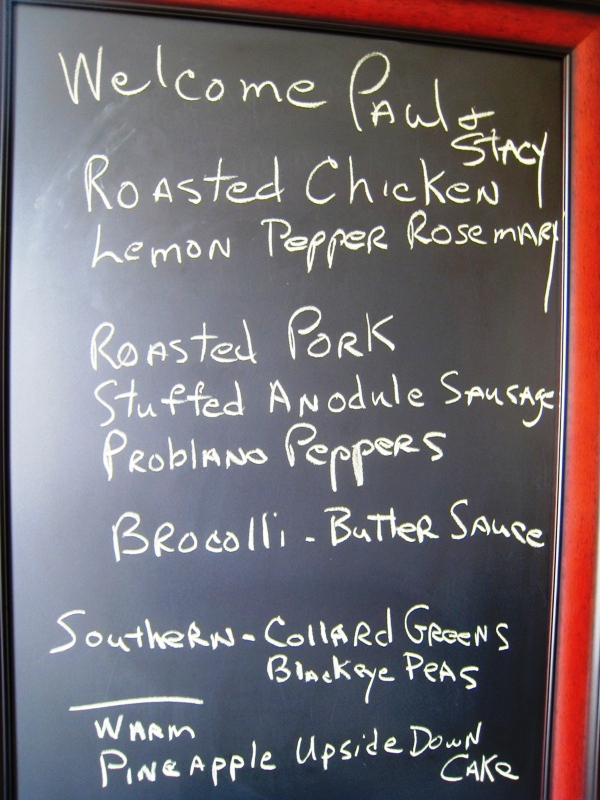 Welcome Paul &
Stacy
Roasted Chicken
Lemon Pepper Rosemary
Roasted Pork
Stuffed Anodule Sausage
Problano Peppers
Brocolli - Butter Sauce
Southern - Collard Greens
Blackeye Peas
Warm
Pineapple Upside Down
Cake